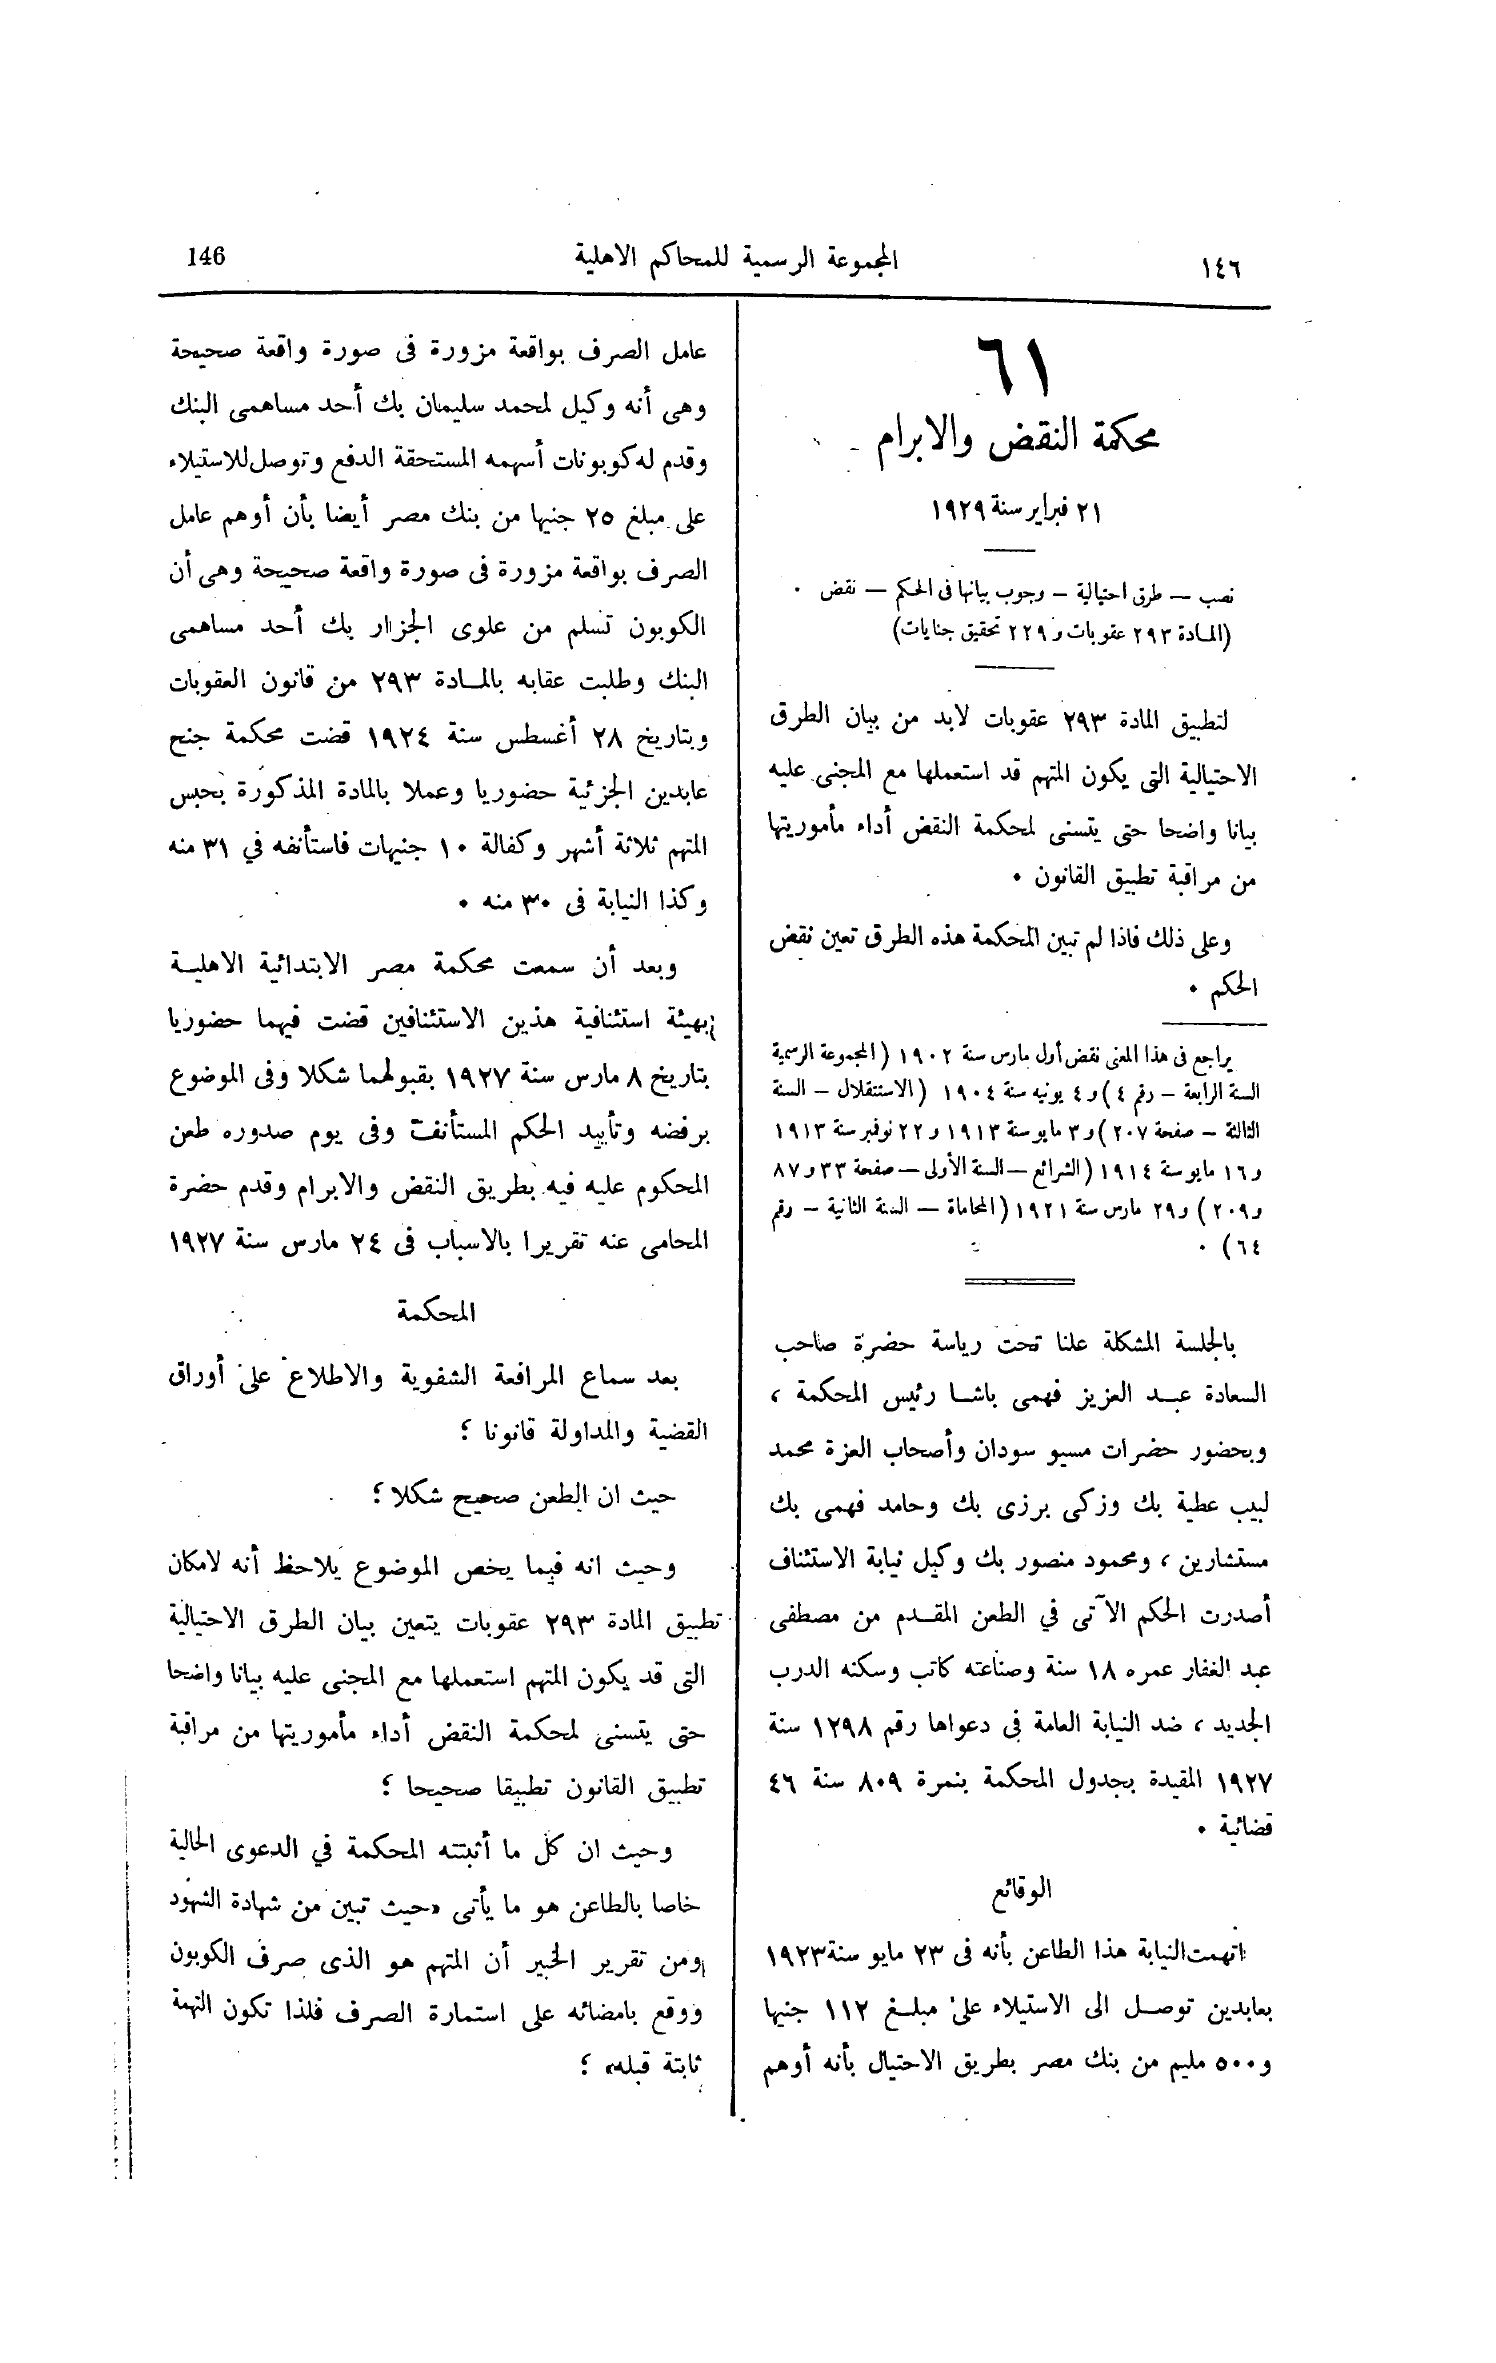 ١٤٦
المجموعة الرسمية للمحاكم الاهلية
146
٦١
محكمة النقض والابرام
٢١ فبراير سنة ١٩٢٩
نصب — طرق احتيالية — وجوب بيانها فى الحكم — نقض ٠
(المادة ٢٩٣ عقوبات و٢٢٩ تحقيق جنايات)
لتطبيق المادة ٢٩٣ عقوبات لابد من بيان الطرق
الاحتيالية التى يكون المتهم قد استعملها مع المجنى عليه
بيانا واضحا حتى يتسنى لمحكمة النقض أداء مأموريتها
من مراقبة تطبيق القانون ٠
وعلى ذلك فاذا لم تبين المحكمة هذه الطرق تعين نقض
الحكم ٠
يراجع فى هذا المعنى نقض أول مارس سنة ١٩٠٢ (المجموعة الرسمية
السنة الرابعة — رقم ٤) و٤ يونيه سنة ١٩٠٤ (الاستقلال — السنة
الثالثة — صفحة ٢٠٧) و٣ مايو سنة ١٩١٣ و٢٢ نوفبر سنة ١٩١٣
و١٦ مايو سنة ١٩١٤ (الشرائع — السنة الأولى — صفحة ٣٣ و٨٧
و٢٠٩) و٢٩ مارس سنة ١٩٢١ (المحاماة — السنة الثانية — رقم
٦٤) ٠
بالجلسة المشكلة علنا تحت رياسة حضرة صاحب
السعادة عبد العزيز فهمى باشا رئيس المحكمة ،
وبحضور حضرات مسيو سودان وأصحاب العزة محمد
لبيب عطية بك وزكى برزى بك وحامد فهمى بك
مستشارين ، ومحمود منصور بك وكيل نيابة الاستئناف
أصدرت الحكم الآتى في الطعن المقدم من مصطفى
عبد الغفار عمره ١٨ سنة وصناعته كاتب وسكنه الدرب
الجديد ، ضد النيابة العامة فى دعواها رقم ١٢٩٨ سنة
١٩٢٧ المقيدة بجدول المحكمة بنمرة ٨٠٩ سنة ٤٦
قضائية ٠
الوقائع
اتهمت النيابة هذا الطاعن بأنه فى ٢٣ مايو سنة ١٩٢٣
بعابدين توصل الى الاستيلاء على مبلغ ١١٢ جنيها
و٥٠٠ مليم من بنك مصر بطريق الاحتيال بأنه أوهم
عامل الصرف بواقعة مزورة فى صورة واقعة صحيحة
وهى أنه وكيل لمحمد سليمان بك أحد مساهمى البنك
وقدم له كوبونات أسهمه المستحقة الدفع وتوصل للاستيلاء
على مبلغ ٢٥ جنيها من بنك مصر أيضا بأن أوهم عامل
الصرف بواقعة مزورة فى صورة واقعة صحيحة وهى أن
الكوبون تسلم من علوى الجزار بك أحد مساهمى
البنك وطلبت عقابه بالمادة ٢٩٣ من قانون العقوبات
وبتاريخ ٢٨ أغسطس سنة ١٩٢٤ قضت محكمة جنح
عابدين الجزئية حضوريا وعملا بالمادة المذكورة بحبس
المتهم ثلاثة أشهر وكفالة ١٠ جنيهات فاستأنفه في ٣١ منه
وكذا النيابة فى ٣٠ منه ٠
وبعد أن سمعت محكمة مصر الابتدائية الاهلية
بهيئة استئنافية هذين الاستئنافين قضت فيهما حضوريا
بتاريخ ٨ مارس سنة ١٩٢٧ بقبولهما شكلا وفى الموضوع
برفضه وتأييد الحكم المستأنف وفى يوم صدوره طعن
المحكوم عليه فيه بطريق النقض والابرام وقدم حضرة
المحامى عنه تقريرا بالاسباب فى ٢٤ مارس سنة ١٩٢٧
المحكمة
بعد سماع المرافعة الشفوية والاطلاع على أوراق
القضية والمداولة قانونا ؛
حيث ان الطعن صحيح شكلا ؛
وحيث انه فيما يخص الموضوع يلاحظ أنه لامكان
تطبيق المادة ٢٩٣ عقوبات يتعين بيان الطرق الاحتيالية
التى قد يكون المتهم استعملها مع المجنى عليه بيانا واضحا
حتى يتسنى لمحكمة النقض أداء مأموريتها من مراقبة
تطبيق القانون تطبيقا صحيحا ؛
وحيث ان كل ما أثبتته المحكمة في الدعوى الحالية
خاصا بالطاعن هو ما يأتى «حيث تبين من شهادة الشهود
ومن تقرير الخبير أن المتهم هو الذى صرف الكوبون
ووقع بامضائه على استمارة الصرف فلذا تكون التهمة
ثابتة قبله» ؛